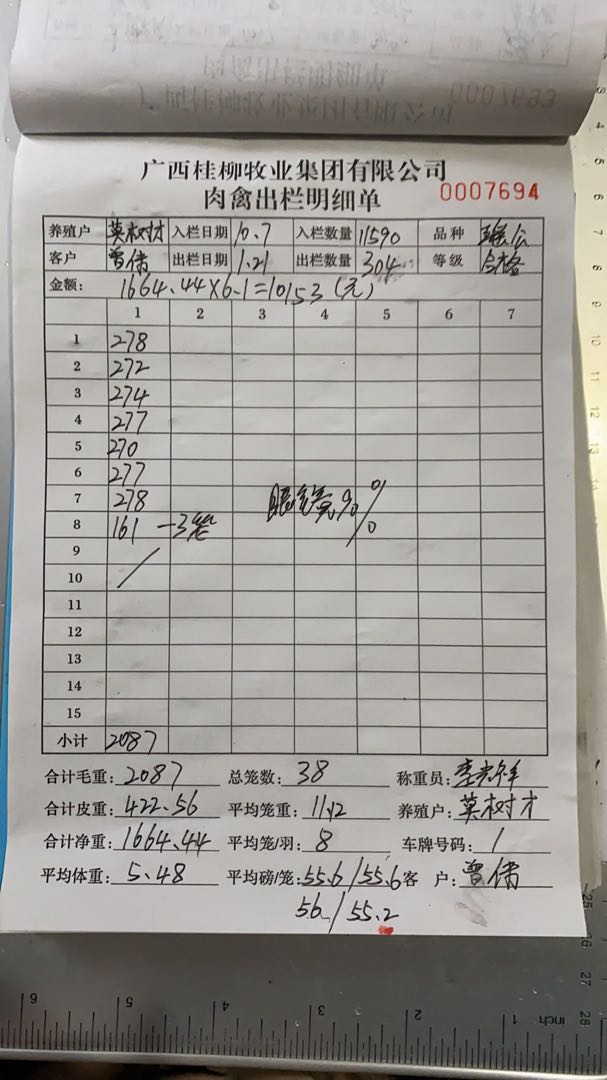 广西桂柳牧业集团有限公司
肉禽出栏明细单
0007694
养殖户 莫树才 入栏日期 10.7 入栏数量 11590 品种
客户 曾倩 出栏日期 1.21 出栏数量 304 等级 合格
金额: 1664.44×6.1=10153(元)
1 2 3 4 5 6 7
1 278
2 272
3 274
4 277
5 270
6 277
7 278
8 161 -3笼
9
10 /
11
12
13
14
15
小计 2087
合计毛重: 2087 总笼数: 38 称重员:
合计皮重: 422.56 平均笼重: 11.12 养殖户: 莫树才
合计净重: 1664.44 平均笼/羽: 8 车牌号码: /
平均体重: 5.48 平均磅/笼: 55.6/55.6 客 户: 曾倩
56/55.2
0007693
inch